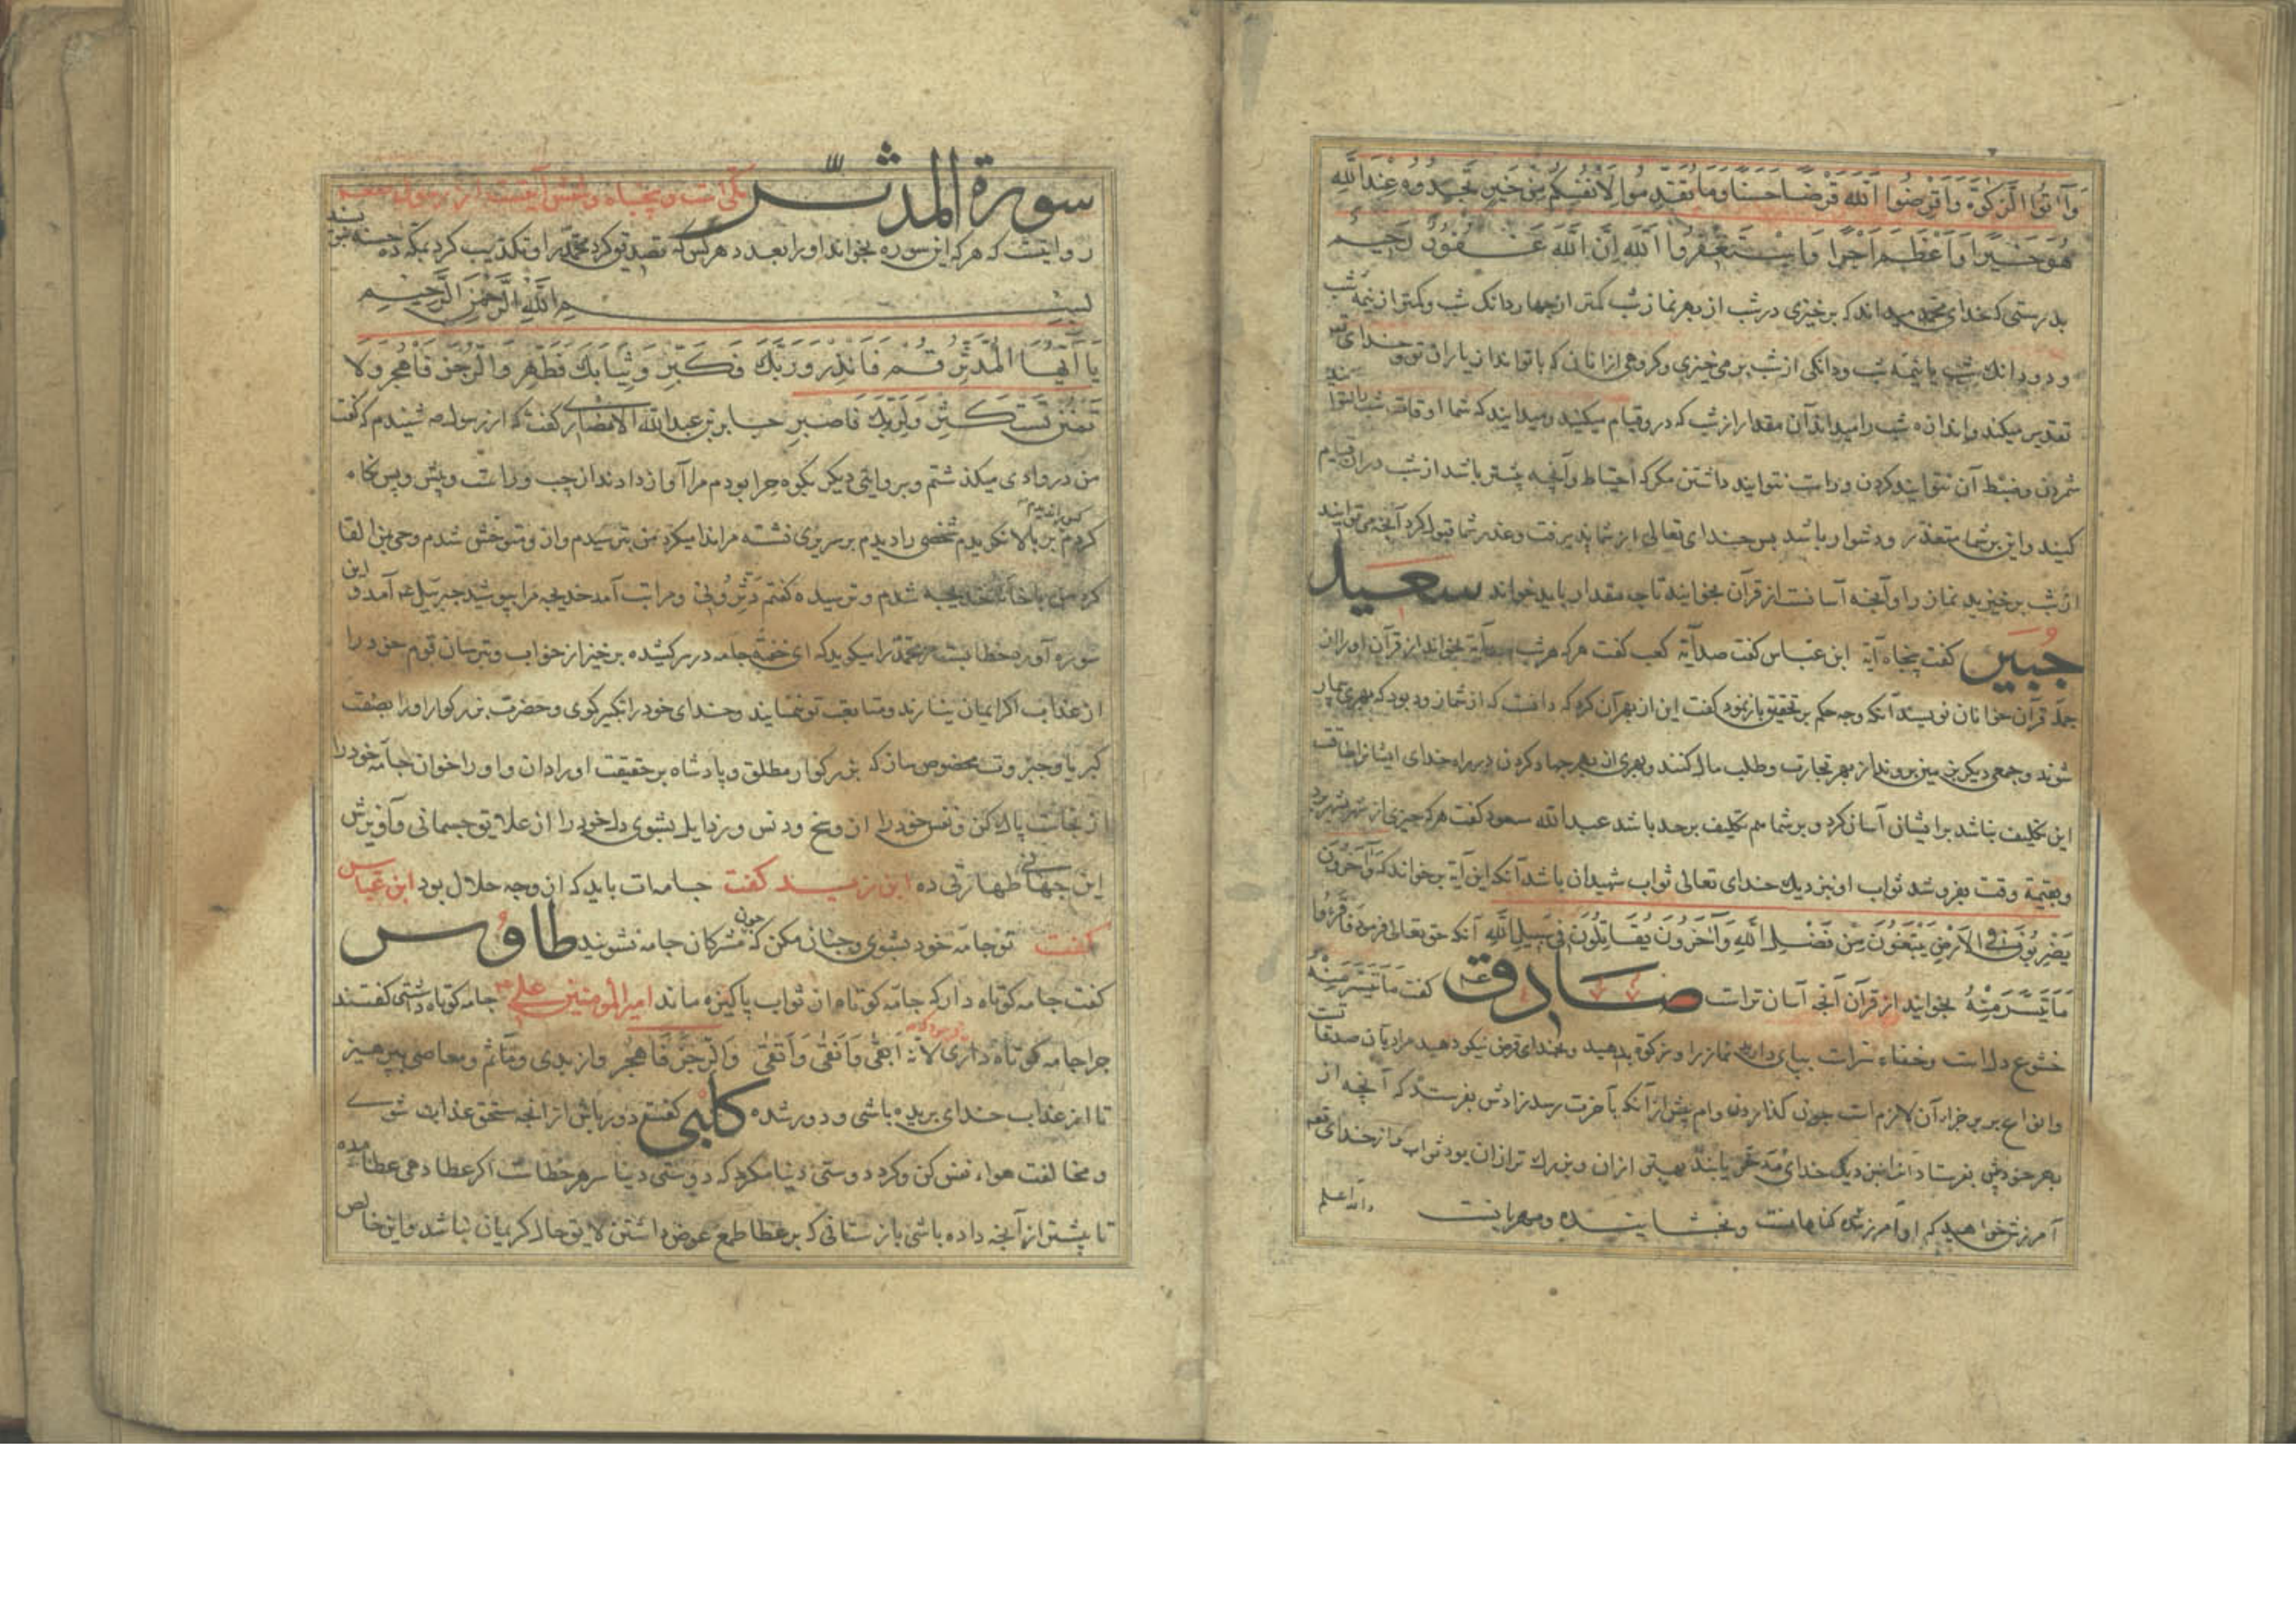 وَآتُوا الزَّكٰوةَ وَاَقْرِضُوا اللّٰهَ قَرْضًا حَسَنًا وَمَا تُقَدِّمُوا لِاَنْفُسِكُمْ مِنْ خَيْرٍ تَجِدُوهُ عِنْدَ اللّٰهِ
هُوَ خَيْرًا وَاَعْظَمَ اَجْرًا وَاسْتَغْفِرُوا اللّٰهَ اِنَّ اللّٰهَ غَفُورٌ رَحِيمٌ
بدرستی که خدای محمد میداند که برخیزی در شب از بهر نماز شب کمتر از چهار دانک شب و کمتر از نیمه شب
و دو دانك شب یا نیمه شب و دانکی از شب برمی خیزی و کروهی از انان که با تواند از یاران تو و خدای
تقدیر میکند و اندازه شب را میداند آن مقدار از شب که در و قیام میکنید و میداند که شما اوقات شب را نتوا نید
شمردن و ضبط آن نتوانید کردن و راست نتوانید داشتن مکر که احتیاط و آنچه بیشتر باشد از شب در ان قیام
کنید و این بر شما متعذر و دشوار باشد پس خدای تعالی از شما پذیرفت و عذر شما قبول کرد آنچه می توانید
از شب برخیزید نماز را و آنچه آسانست از قرآن بخوانید تا چه مقدار باید خواند سعید
جُبیر کفت پنجاه آیة ابن عباس کفت صد آیة کعب کفت هر که هر شب صد آیة بخواند از قرآن او را از
جملۀ قرآن خوانان نویسند آنکه وجه حکم بر تحقیق باز نمود کفت این از بهر آن کرد که دانست که از شما زود بود که بهری بیمار
شوند و جمعی دیکر بزمین بروند از بهر تجارت و طلب مال کنند و بهری از بهر جهاد کردن در راه خدای ایشانرا طاقت
این تکلیف نباشد بر ایشان آسان کرد و بر شما هم تکلیف بر حد باشد عبد الله مسعود کفت هر که چیزی از شهر بشهر برد
و بقیمة وقت بفروشد ثواب او نزدیك خدای تعالی ثواب شهیدان باشد آنکه این آیة برخواند که وَآخَرُونَ
يَضْرِبُونَ فِي الْاَرْضِ يَبْتَغُونَ مِنْ فَضْلِ اللّٰهِ وَآخَرُونَ يُقَاتِلُونَ فِي سَبِيلِ اللّٰهِ آنکه حق تعالی فرمود فَاقْرَءُوا
مَا تَيَسَّرَ مِنْهُ بخوانید از قرآن آنچه آسان تر است صادق ع کفت مَا تَيَسَّرَ مِنْهُ
خشوع دل است و صفاء سرّ است بپای دارید نماز را و زکوة بدهید و بخدای قرض نیکو دهید مراد بآن صدقات
و انواع بر و خیر آن لازم است چون کذاردن وام پیش از آنکه بآخرت رسد زادش بفرستد که آنچه از
بهر خود پیش بفرستاد آنرا نزدیک خدای یابند بهتر از ان و بزرك تر از ان بود ثواب و از خدای
آمرزش خواهید که او آمرزندۀ کناهانست و بخشاینده و مهربانست والله اعلم
سورة المدثر مکی است و پنجاه و شش آیتست از رسول
روایتست که هر که این سوره بخواند او را بعدد هر کس که تصدیق کرد محمد را و تکذیب کرد بمکه ده حسنه بنویسند
بِسْمِ اللّٰهِ الرَّحْمٰنِ الرَّحِيمِ
يَا اَيُّهَا الْمُدَّثِّرُ قُمْ فَاَنْذِرْ وَرَبَّكَ فَكَبِّرْ وَثِيَابَكَ فَطَهِّرْ وَالرُّجْزَ فَاهْجُرْ وَلَا
تَمْنُنْ تَسْتَكْثِرُ وَلِرَبِّكَ فَاصْبِرْ جابر بن عبدالله الانصاری کفت که از رسول ص شنیدم که کفت
من در وادی میکذشتم و بروایتی دیکر بکوه حرا بودم مرا آواز دادند از چپ و راست و پیش و پس نکاه
کردم کس را ندیدم بر بالا نکریدم شخصی را دیدم بر سریری نشسته مرا ندا میکرد من بترسیدم و از دهشت شدم وحی بمن القا
کرد من با خانه خدیجه شدم و ترسیده کفتم دَثِّرُونِی و مرا تب آمد خدیجه مرا بپوشید جبرئیل ع آمد و این
سوره آورد خطابست مر محمد را میکوید که ای خفتۀ جامه در سر کشیده برخیز از خواب و بترسان قوم خود را
از عذاب اکر ایمان نیارند و متابعت تو ننمایند و خدای خود را تکبیر کوی و حضرت بزرکوار او را بصفت
کبریا و جبروت مخصوص ساز که بزرکوار مطلق و پادشاه بر حقیقت او را دان و او را خوان جامه خود را
از نجاست پاك کن و نفس خود را از وسخ و دنس و رذایل بشوی دل خود را از علایق جسمانی و آویزش
این جهانی طهارتی ده ابن زید کفت جامه‌ات باید که از وجه حلال بود ابن عباس
کفت تو جامه خود بشوی و چنان مکن که چون مشرکان جامه نشویند طاوُس
کفت جامه کوتاه دار که جامه کوتاه از ثواب پاکیزه ماند امیر المومنین علی ع جامه کوتاه داشتی کفتند
چرا جامه کوتاه داری فرمود که لانه ابقی وَاَنقی وَاَتقی وَالرُّجْزَ فَاهْجُرْ و از بدی و مآثم و معاصی بپرهیز
تا از عذاب خدای بریده باشی و دور شده کلبی کفت دور باش از انچه مستحق عذاب شوی
و مخالفت هواء نفس کن و کرد دوستی دنیا مکرد که دوستی دنیا سر هر خطاست اکر عطا دهی عطا مده
تا بیشتر از آنچه داده باشی باز ستانی که بر عطا طمع عوض داشتن لایق حال کریمان نباشد و این خالص